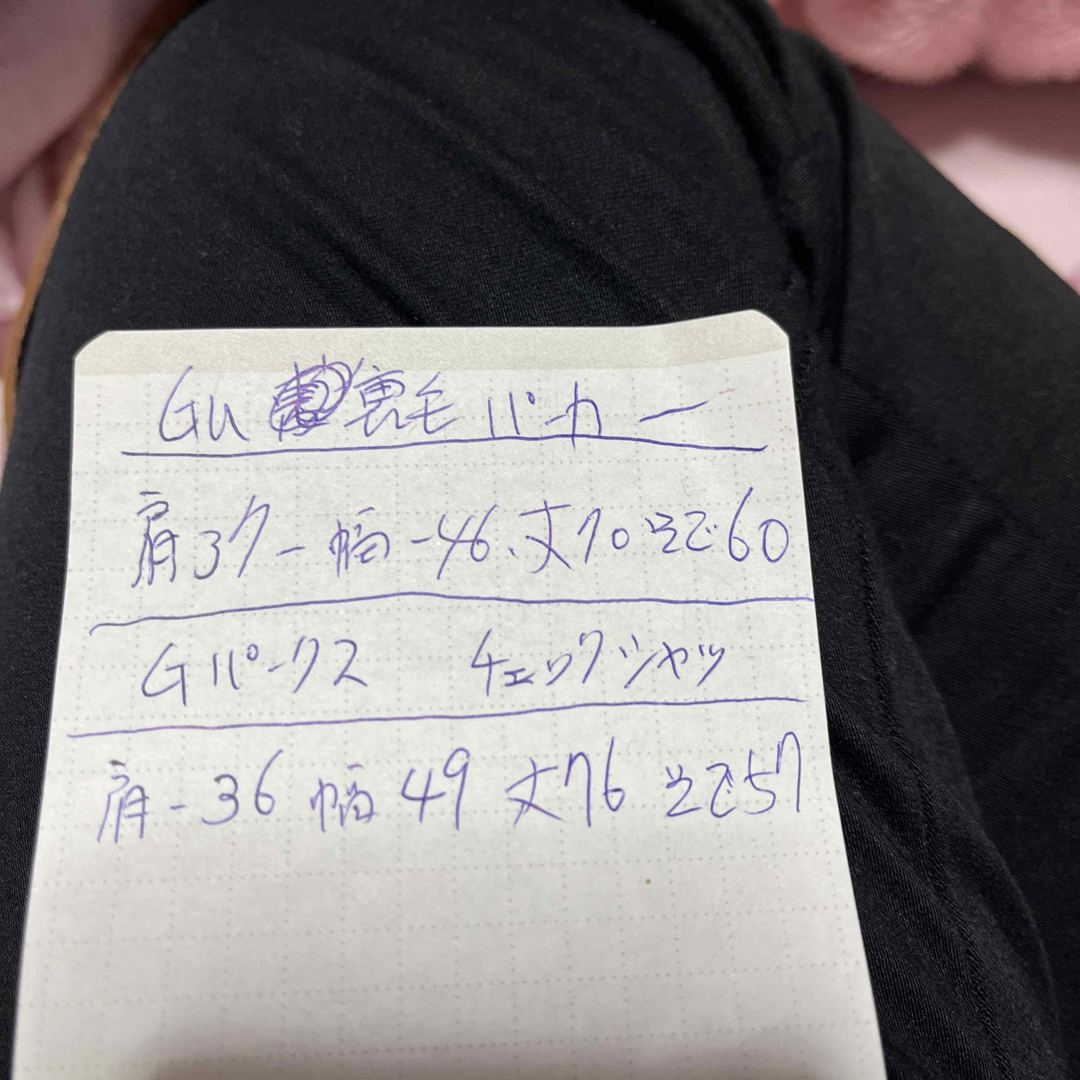 GU 裏毛パーカー
肩37-幅-46、丈70そで60
Gパークス チェックシャツ
肩-36 幅49 丈76 そで57